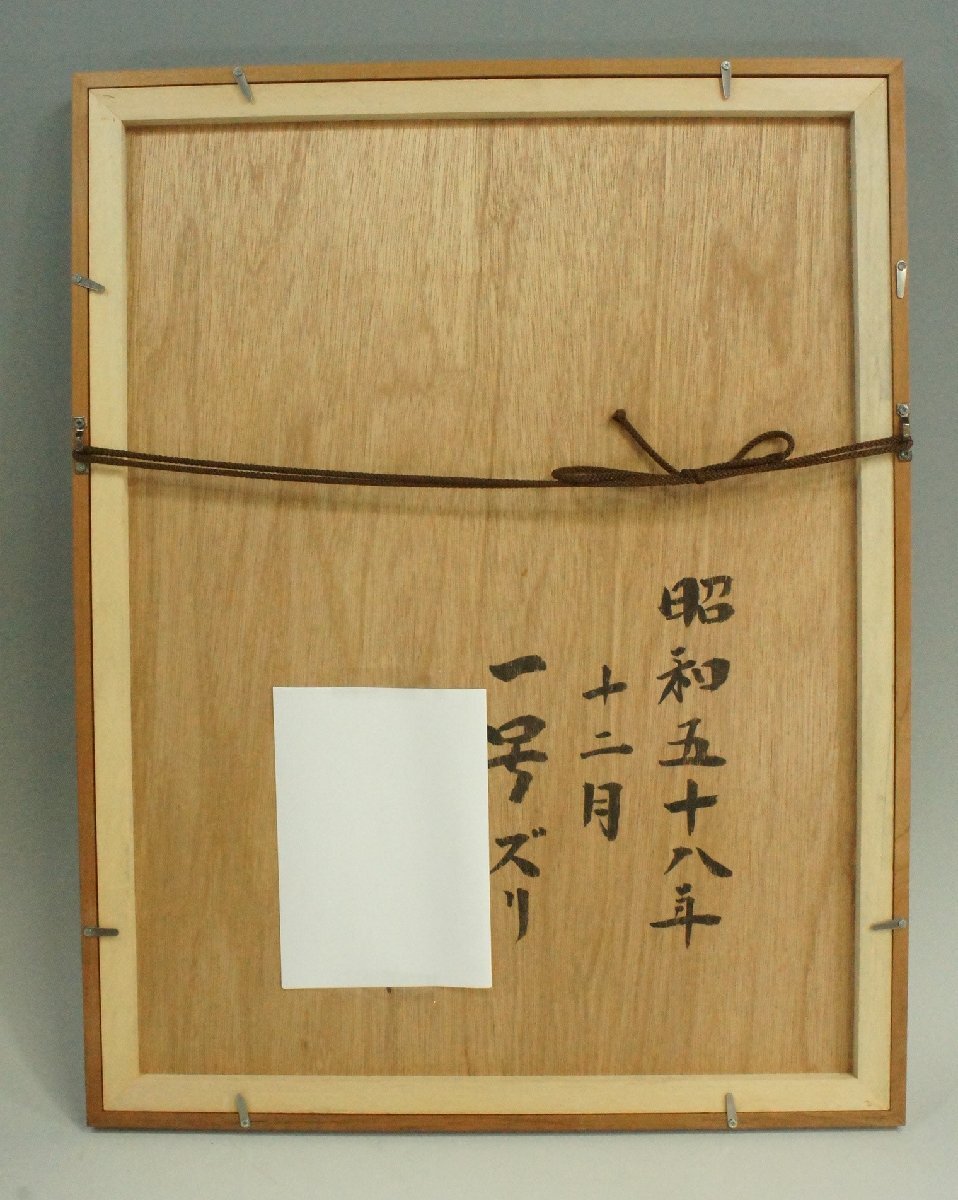 昭和五十八年
十二月
一号ズリ